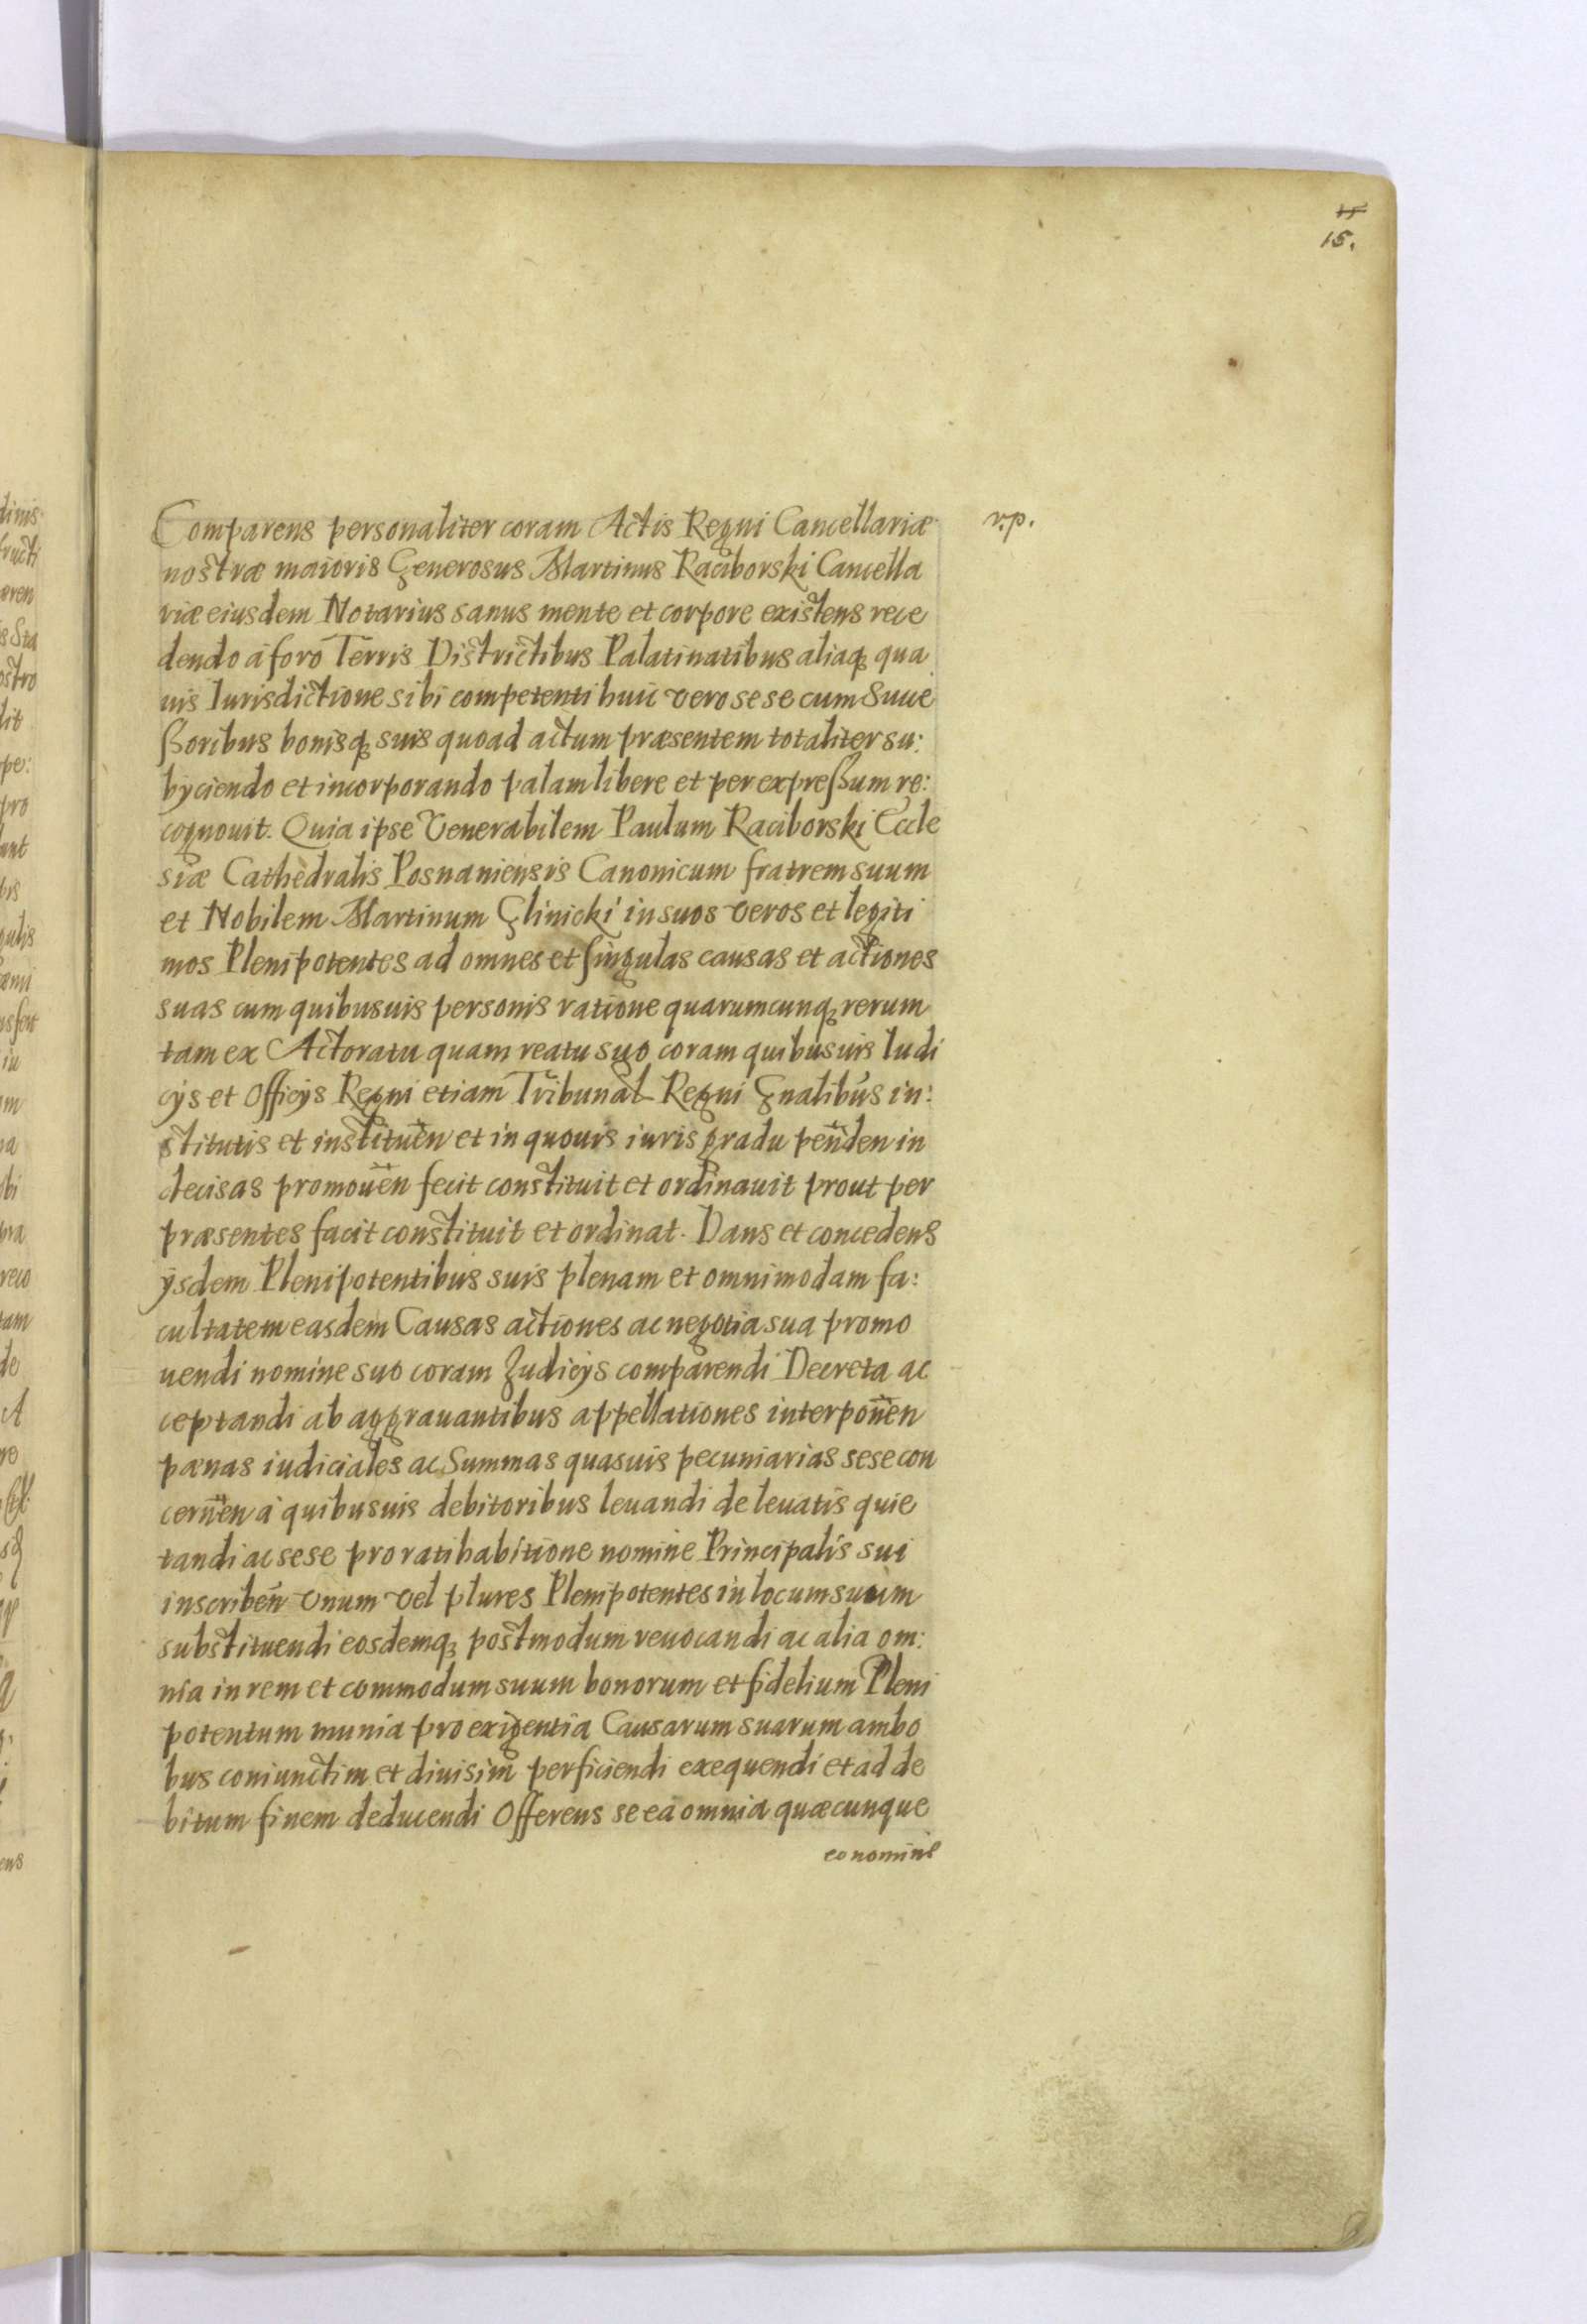 15.
r.p.
Comparens personaliter coram Actis Regni Cancellariæ
nostræ maioris Generosus Martinus Raciborski Cancella
riæ eiusdem Notarius sanus mente et corpore existens rece
dendo a foro Terris Districtibus Palatinatibus aliaq, qua
uis Iurisdictione sibi competenti huic vero sese cum Succe
ßoribus bonisq, suis quoad actum præsentem totaliter su:
byciendo et incorporando palam libere et per expreßum re:
cognouit. Quia ipse Venerabilem Paulum Raciborski Eccle
siæ Cathedralis Posnaniensis Canonicum fratrem suum
et Nobilem Martinum Glinicki in suos veros et legiti
mos Plenipotentes ad omnes et singulas causas et actiones
suas cum quibusuis personis ratione quarumcunq, rerum
tam ex Actoratu quam reatu suo coram quibusuis Iudi
cys et Officys Regni etiam Tribunal Regni Gnalibus in:
stitutis et instituen et in quouis iuris gradu penden in
decisas promouen fecit constituit et ordinauit prout per
præsentes facit constituit et ordinat. Dans et concedens
ysdem Plenipotentibus suis plenam et omnimodam fa:
cultatem easdem Causas actiones ac negotia sua promo
uendi nomine suo coram Iudicys comparendi Decreta ac
ceptandi ab aggrauantibus appellationes interponen
pænas iudiciales ac Summas quasuis pecuniarias sese con
cernen a quibusuis debitoribus leuandi de leuatis quie
tandi ac sese pro ratihabitione nomine Principalis sui
inscriben Vnum vel plures Plenipotentes in locum suum
substituendi eosdemq, postmodum reuocandi ac alia om:
nia in rem et commodum suum bonorum et fidelium Pleni
potentum munia pro exigentia Causarum suarum ambo
bus coniunctim et diuisim perficiendi exequendi et ad de
bitum finem deducendi Offerens se ea omnia quæcunque
eo nomine